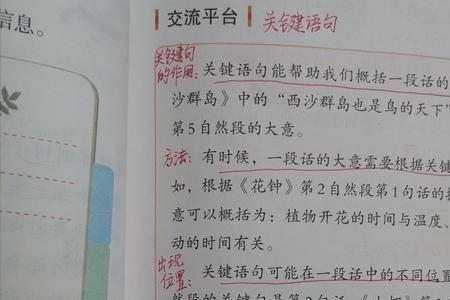 信息。
交流平台
关键语句
关键句
的作用:
关键语句能帮助我们概括一段话的
沙群岛》中的“西沙群岛也是鸟的天下”
第5自然段的大意。
方法:
有时候，一段话的大意需要根据关键
如，根据《花钟》第2自然段第1句话的
意可以概括为：植物开花的时间与温度、
动的时间有关。
出现
位置:
关键语句可能在一段话中的不同位置